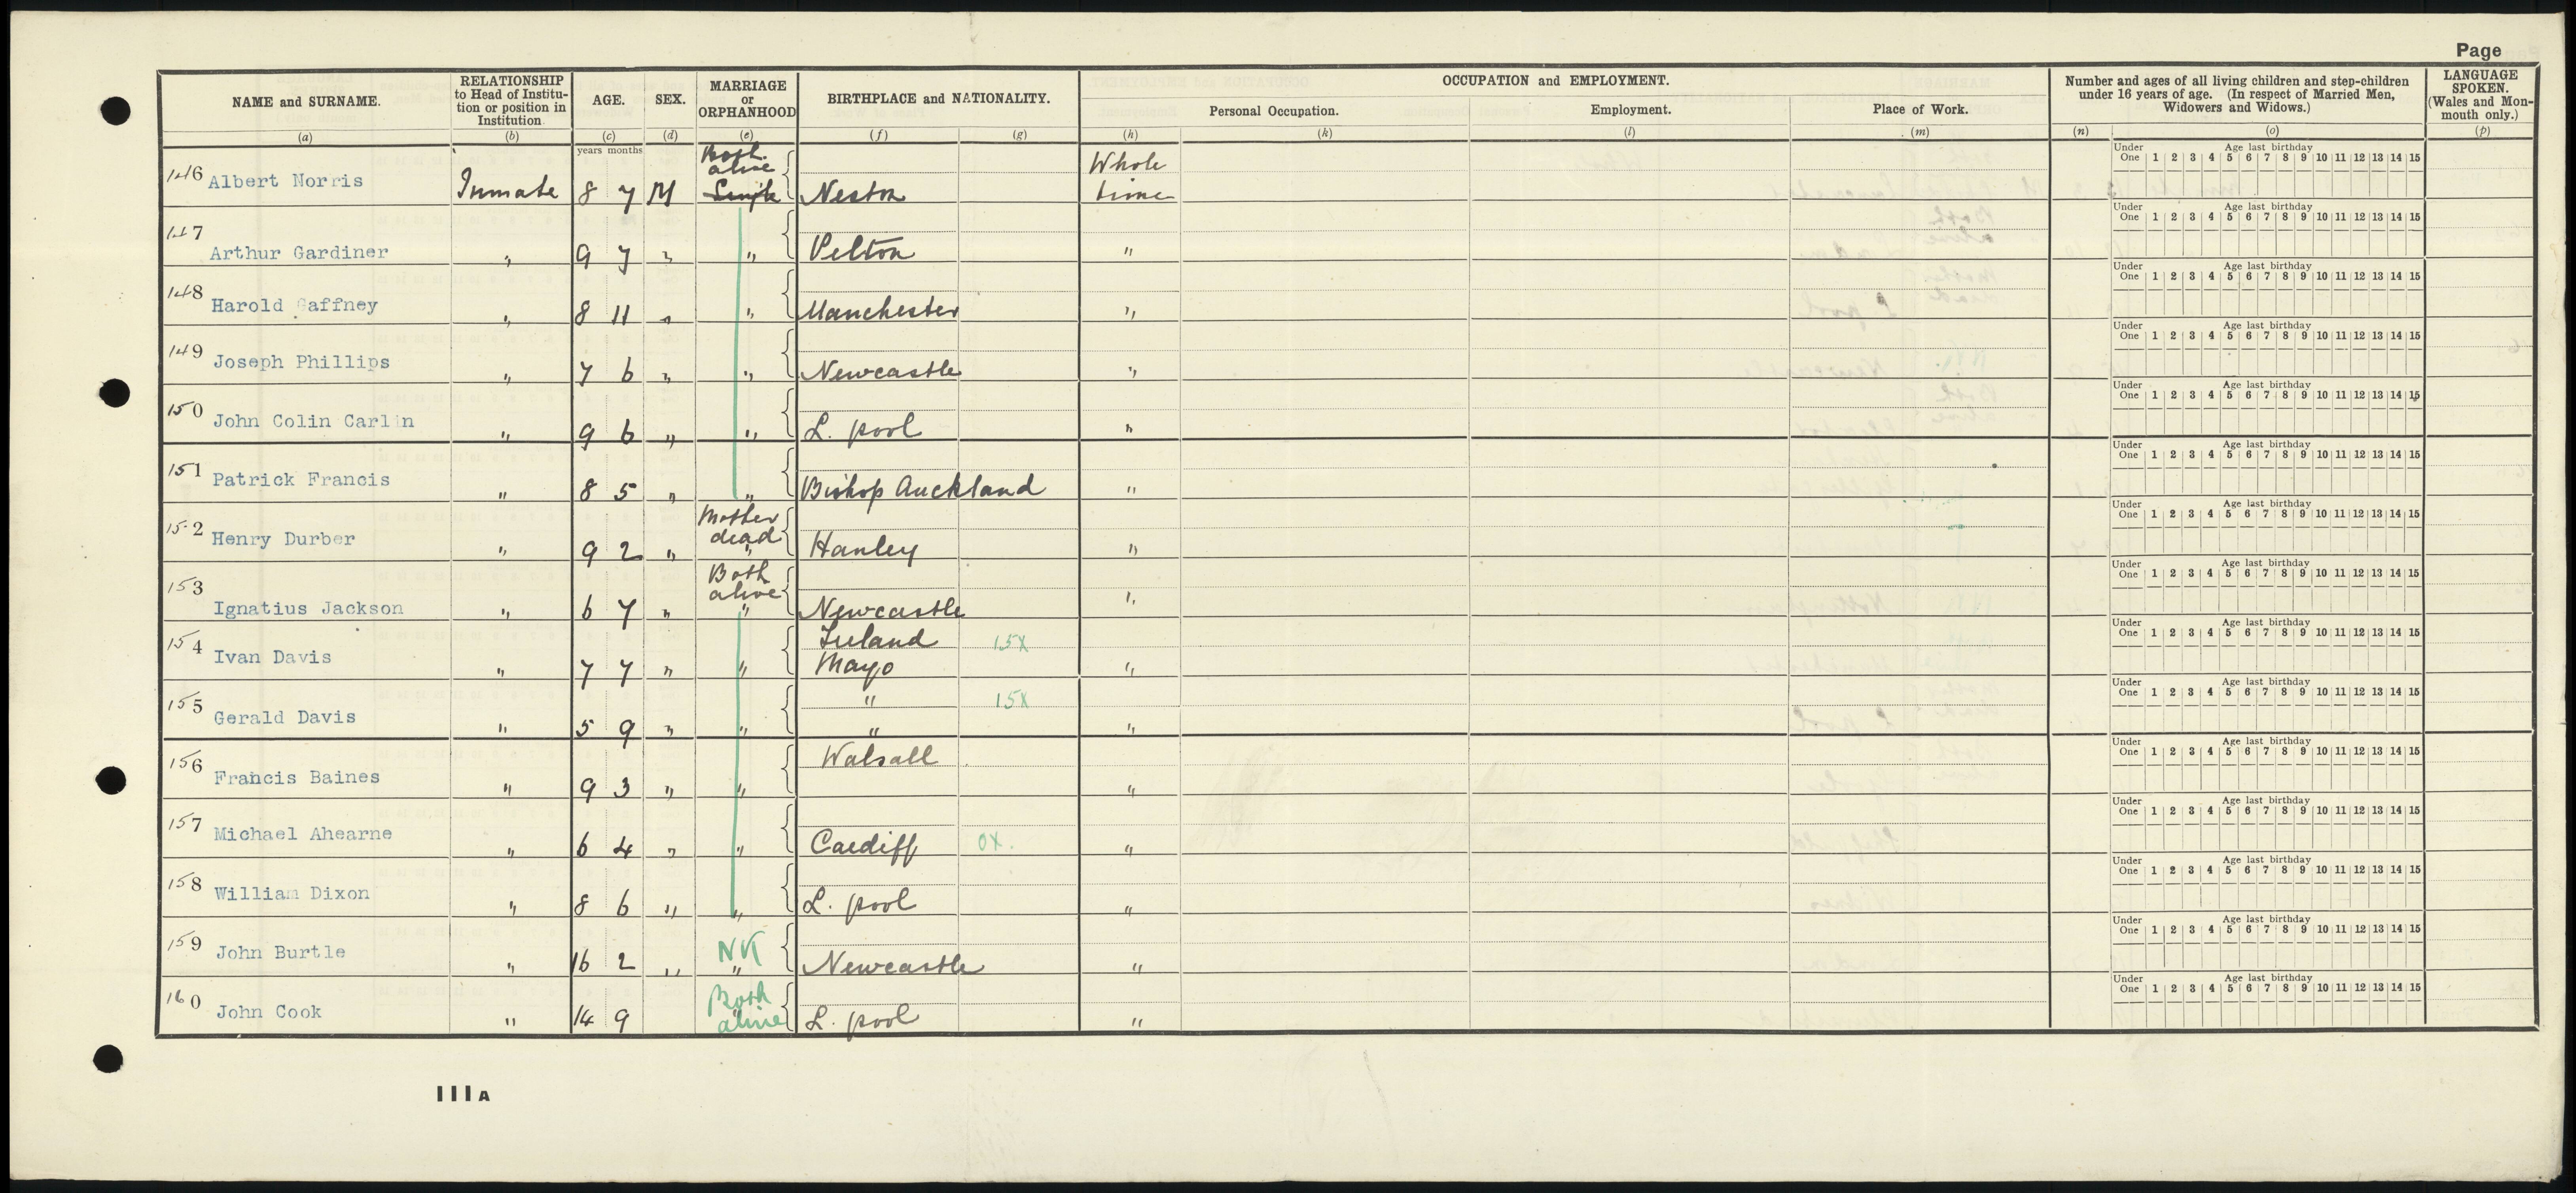 Page
NAME and SURNAME.
RELATIONSHIP
to Head of Institu-
tion or position in
Institution
AGE.
SEX.
MARRIAGE
or
ORPHANHOOD
BIRTHPLACE and NATIONALITY.
OCCUPATION and EMPLOYMENT.
Personal Occupation.
Employment.
Place of Work.
Number and ages of all living children and step-children
under 16 years of age. (In respect of Married Men,
Widowers and Widows.)
LANGUAGE
SPOKEN.
(Wales and Mon-
mouth only.)
(a) (b) (c) (d) (e) (f) (g) (h) (k) (l) (m) (n) (o) (p)
years months
146 Albert Norris Inmate 8 7 M Both alive Single Neston Whole time
Under One 1 2 3 4 5 6 7 8 9 10 11 12 13 14 15 Age last birthday
147 Arthur Gardiner " 9 7 " " Pelton "
Under One 1 2 3 4 5 6 7 8 9 10 11 12 13 14 15 Age last birthday
148 Harold Gaffney " 8 11 " " Manchester "
Under One 1 2 3 4 5 6 7 8 9 10 11 12 13 14 15 Age last birthday
149 Joseph Phillips " 7 6 " " Newcastle "
Under One 1 2 3 4 5 6 7 8 9 10 11 12 13 14 15 Age last birthday
150 John Colin Carlin " 9 6 " " L. pool "
Under One 1 2 3 4 5 6 7 8 9 10 11 12 13 14 15 Age last birthday
151 Patrick Francis " 8 5 " " Bishop Auckland "
Under One 1 2 3 4 5 6 7 8 9 10 11 12 13 14 15 Age last birthday
152 Henry Durber " 9 2 " Mother dead " Hanley "
Under One 1 2 3 4 5 6 7 8 9 10 11 12 13 14 15 Age last birthday
153 Ignatius Jackson " 6 7 " Both alive " Newcastle "
Under One 1 2 3 4 5 6 7 8 9 10 11 12 13 14 15 Age last birthday
154 Ivan Davis " 7 7 " " Ireland Mayo 15X "
Under One 1 2 3 4 5 6 7 8 9 10 11 12 13 14 15 Age last birthday
155 Gerald Davis " 5 9 " " " " 15X "
Under One 1 2 3 4 5 6 7 8 9 10 11 12 13 14 15 Age last birthday
156 Francis Baines " 9 3 " " Walsall "
Under One 1 2 3 4 5 6 7 8 9 10 11 12 13 14 15 Age last birthday
157 Michael Ahearne " 6 4 " " Cardiff OX. "
Under One 1 2 3 4 5 6 7 8 9 10 11 12 13 14 15 Age last birthday
158 William Dixon " 8 6 " " L. pool "
Under One 1 2 3 4 5 6 7 8 9 10 11 12 13 14 15 Age last birthday
159 John Burtle " 16 2 " NK " Newcastle "
Under One 1 2 3 4 5 6 7 8 9 10 11 12 13 14 15 Age last birthday
160 John Cook " 14 9 Both alive " L. pool "
Under One 1 2 3 4 5 6 7 8 9 10 11 12 13 14 15 Age last birthday
IIIA